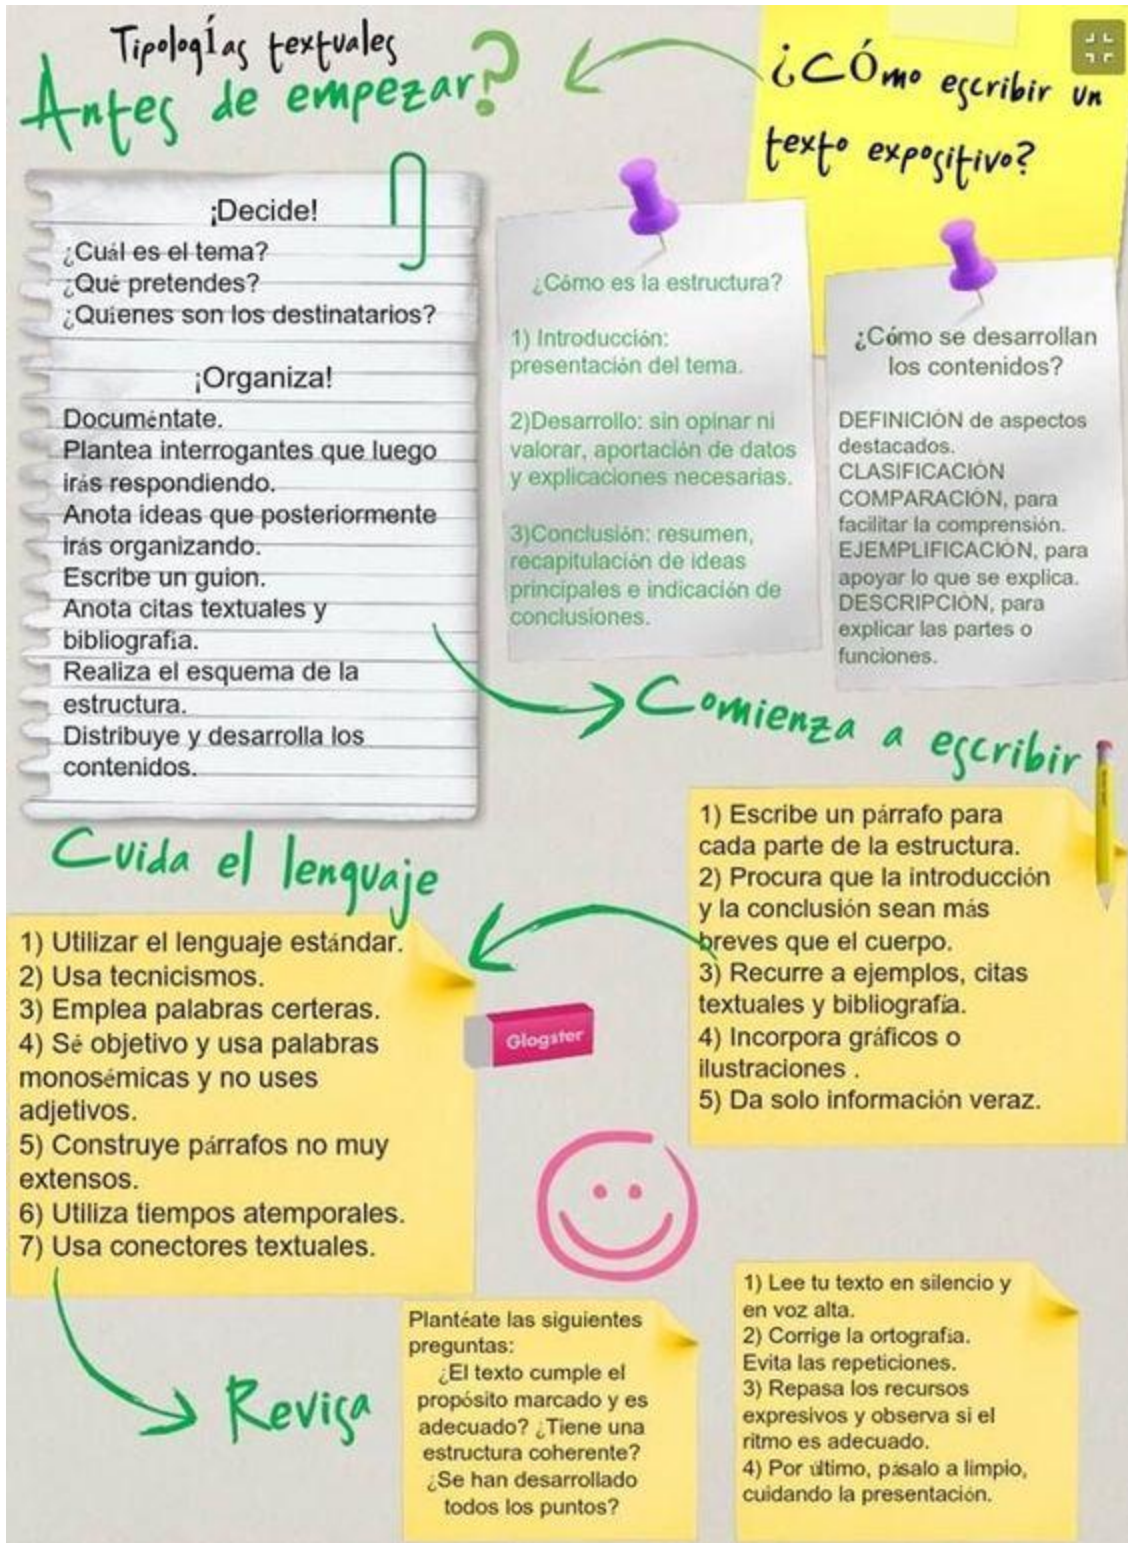 Tipologías textuales
¿Cómo escribir un
texto expositivo?
Antes de empezar?
¡Decide!
¿Cuál es el tema?
¿Qué pretendes?
¿Quienes son los destinatarios?
¡Organiza!
Documéntate.
Plantea interrogantes que luego
irás respondiendo.
Anota ideas que posteriormente
irás organizando.
Escribe un guion.
Anota citas textuales y
bibliografia.
Realiza el esquema de la
estructura.
Distribuye y desarrolla los
contenidos.
¿Cómo es la estructura?
1) Introducción:
presentación del tema.
2)Desarrollo: sin opinar ni
valorar, aportación de datos
y explicaciones necesarias.
3)Conclusión: resumen,
recapitulación de ideas
principales e indicación de
conclusiones.
¿Cómo se desarrollan
los contenidos?
DEFINICIÓN de aspectos
destacados.
CLASIFICACIÓN
COMPARACIÓN, para
facilitar la comprensión.
EJEMPLIFICACIÓN, para
apoyar lo que se explica.
DESCRIPCIÓN, para
explicar las partes o
funciones.
Comienza a escribir
1) Escribe un párrafo para
cada parte de la estructura.
2) Procura que la introducción
y la conclusión sean más
breves que el cuerpo.
3) Recurre a ejemplos, citas
textuales y bibliografía.
4) Incorpora gráficos o
ilustraciones .
5) Da solo información veraz.
Cuida el lenguaje
1) Utilizar el lenguaje estándar.
2) Usa tecnicismos.
3) Emplea palabras certeras.
4) Sé objetivo y usa palabras
monosémicas y no uses
adjetivos.
5) Construye párrafos no muy
extensos.
6) Utiliza tiempos atemporales.
7) Usa conectores textuales.
Glogster
Revisa
Plantéate las siguientes
preguntas:
¿El texto cumple el
propósito marcado y es
adecuado? ¿Tiene una
estructura coherente?
¿Se han desarrollado
todos los puntos?
1) Lee tu texto en silencio y
en voz alta.
2) Corrige la ortografia.
Evita las repeticiones.
3) Repasa los recursos
expresivos y observa si el
ritmo es adecuado.
4) Por último, pásalo a limpio,
cuidando la presentación.